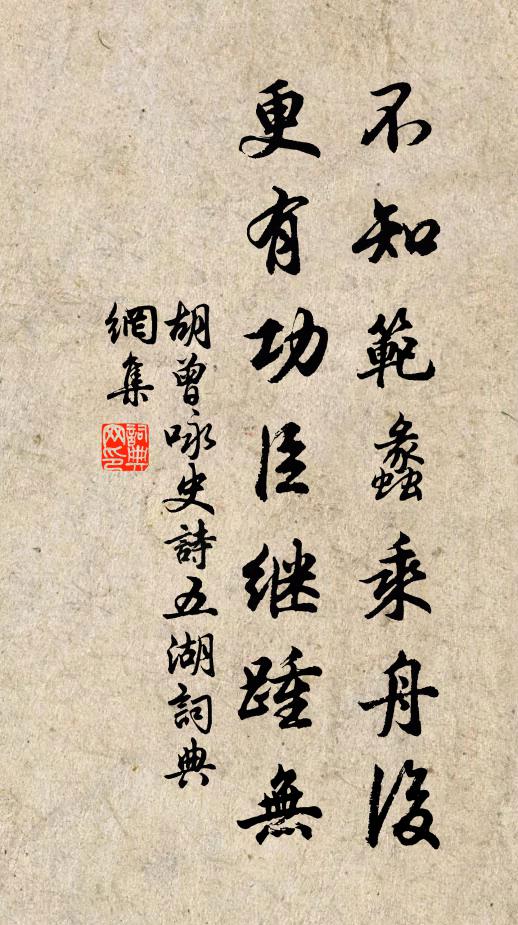 不知範蠡乘舟後
更有功臣继踵無
胡曾咏史詩五湖詞典
網集
詞典
网印